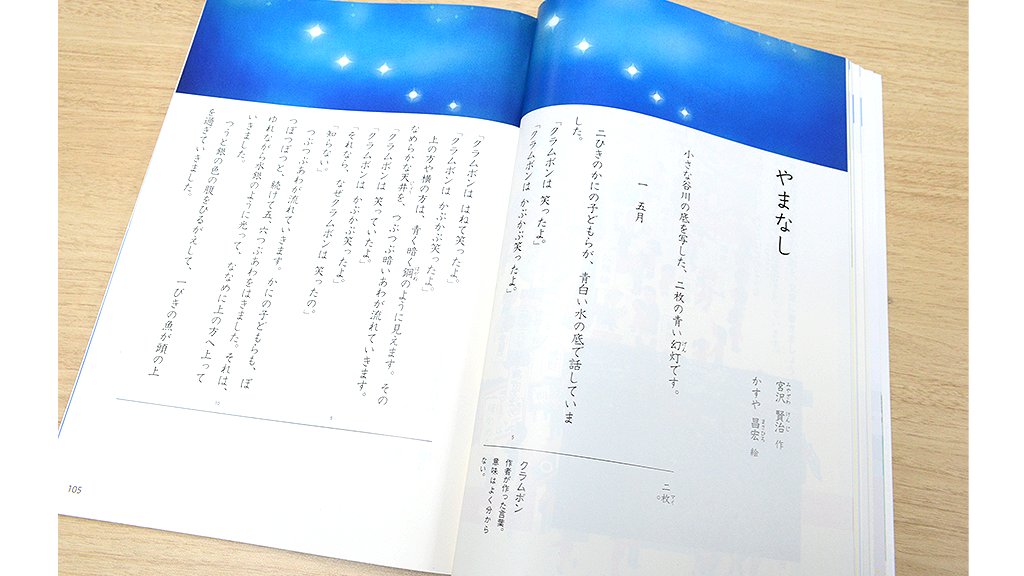 やまなし
宮沢 賢治 作
みやざわ けんじ
かすや 昌宏 絵
まさひろ
小さな谷川の底を写した、二枚の青い幻灯です。
げん
一 五月
二ひきのかにの子どもらが、青白い水の底で話していま
した。
「クラムボンは 笑ったよ。」
「クラムボンは かぷかぷ笑ったよ。」
5
二枚
マイ
クラムボン
作者が作った言葉。
意味はよく分から
ない。
「クラムボンは はねて笑ったよ。」
「クラムボンは かぷかぷ笑ったよ。」
上の方や横の方は、青く暗く鋼のように見えます。その
はがね
なめらかな天井を、つぶつぶ暗いあわが流れていきます。
じょう
「クラムボンは 笑っていたよ。」
「クラムボンは かぷかぷ笑ったよ。」
「それなら、なぜクラムボンは 笑ったの。」
「知らない。」
つぶつぶあわが流れていきます。かにの子どもらも、ぽ
つぽつぽつと、続けて五、六つぶあわをはきました。それは、
ゆれながら水銀のように光って、ななめに上の方へ上って
いきました。
つうと銀の色の腹をひるがえして、一ぴきの魚が頭の上
を過ぎていきました。
5
10
105